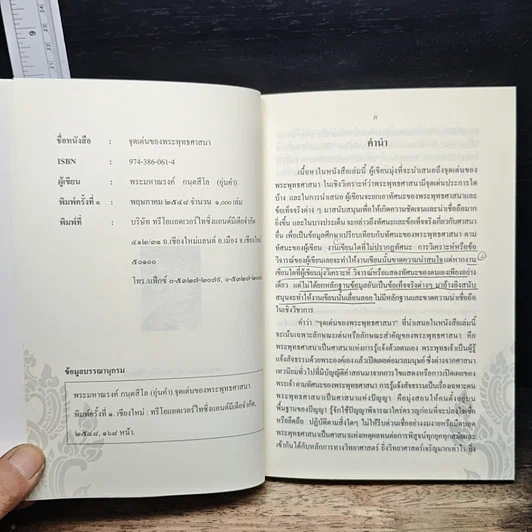 ชื่อหนังสือ : จุดเด่นของพระพุทธศาสนา
ISBN : 974-386-061-4
ผู้เขียน : พระมหาณรงค์ กนฺตสีโล (อุ่นคำ)
พิมพ์ครั้งที่ ๑ : พฤษภาคม ๒๕๔๔ จำนวน ๑,๐๐๐ เล่ม
พิมพ์ที่ : บริษัท ทรีโอแอดเวอร์ไทซิ่งแอนด์มีเดียจำกัด
ถ.เชียงใหม่แลนด์ อ.เมือง จ.เชียงใหม่
๕๐๑๐๐
โทร./แฟ็กซ์
ข้อมูลบรรณานุกรม
พระมหาณรงค์ กนฺตสีโล (อุ่นคำ) จุดเด่นของพระพุทธศาสนา
พิมพ์ครั้งที่ ๑. เชียงใหม่ : ทรีโอแอดเวอร์ไทซิ่งแอนด์มีเดียจำกัด,
หน้า.
ก
คำนำ
เนื้อหาในหนังสือเล่มนี้ ผู้เขียนมุ่งที่จะนำเสนอถึงจุดเด่นของ
พระพุทธศาสนา ในเชิงวิเคราะห์ว่าพระพุทธศาสนามีจุดเด่นประการใด
บ้าง และในการนำเสนอ ผู้เขียนจะยกเอาทัศนะของพระพุทธศาสนาและ
ข้อเท็จจริงต่าง ๆ มาสนับสนุนเพื่อให้เกิดความชัดเจนและน่าเชื่อถือมาก
ยิ่งขึ้น และในบางประเด็น จะกล่าวถึงทัศนะและข้อเท็จจริงเกี่ยวกับศาสนา
อื่น เพื่อเป็นข้อมูลศึกษาเปรียบเทียบกับทัศนะของพระพุทธศาสนา ตาม
ทัศนะของผู้เขียน งานเขียนใดที่ไม่ปรากฏทัศนะ การวิเคราะห์หรือข้อ
วิจารณ์ของผู้เขียนเลยจะทำให้งานเขียนนั้นขาดความน่าสนใจ แต่หากงาน
เขียนใดที่ผู้เขียนมุ่งวิเคราะห์ วิจารณ์หรือแสดงทัศนะของตนเองเพียงอย่าง
เดียว แต่ไม่ได้ยกหลักฐานข้อมูลอันเป็นข้อเท็จจริงต่างๆ มาอ้างอิงสนับ
สนุนจะทำให้งานเขียนนั้นเลื่อนลอย ไม่มีหลักฐานและขาดความน่าเชื่อถือ
ในเชิงวิชาการ
คำว่า "จุดเด่นของพระพุทธศาสนา" ที่นำเสนอในหนังสือเล่มนี้
จะเน้นเฉพาะลักษณะเด่นหรือลักษณะสำคัญของพระพุทธศาสนา คือ
พระพุทธศาสนาเป็นศาสนาแห่งการรู้แจ้งด้วยตนเอง พระพุทธเจ้าเป็นผู้รู้
แจ้งสัจธรรมด้วยพระองค์เองแล้วเปิดเผยต่อมวลมนุษย์ ซึ่งต่างจากศาสนา
เทวนิยมทั่วไปที่มีบัญญัติคำสอนมาจากการไขแสดงหรือการเปิดเผยของ
พระเจ้า ตามทัศนะของพระพุทธศาสนา การรู้แจ้งสัจธรรมเป็นเรื่องเฉพาะตน
พระพุทธศาสนาเป็นศาสนาแห่งปัญญา คือมุ่งสอนให้คนตั้งอยู่บน
พื้นฐานของปัญญา รู้จักใช้ปัญญาพิจารณาไตร่ตรวญก่อนที่จะปลงใจเชื่อ
หรือยึดถือ ปฏิบัติตามสิ่งใดๆ ไม่ให้รีบด่วนเชื่ออย่างงมงายหรือมืดบอด
พระพุทธศาสนาเป็นศาสนาแห่งเหตุผลทนต่อการพิสูจน์ทุกยุคทุกสมัยและ
เข้ากันได้กับหลักการทางวิทยาศาสตร์ ยิ่งวิทยาศาสตร์เจริญมากเท่าไร ยิ่ง